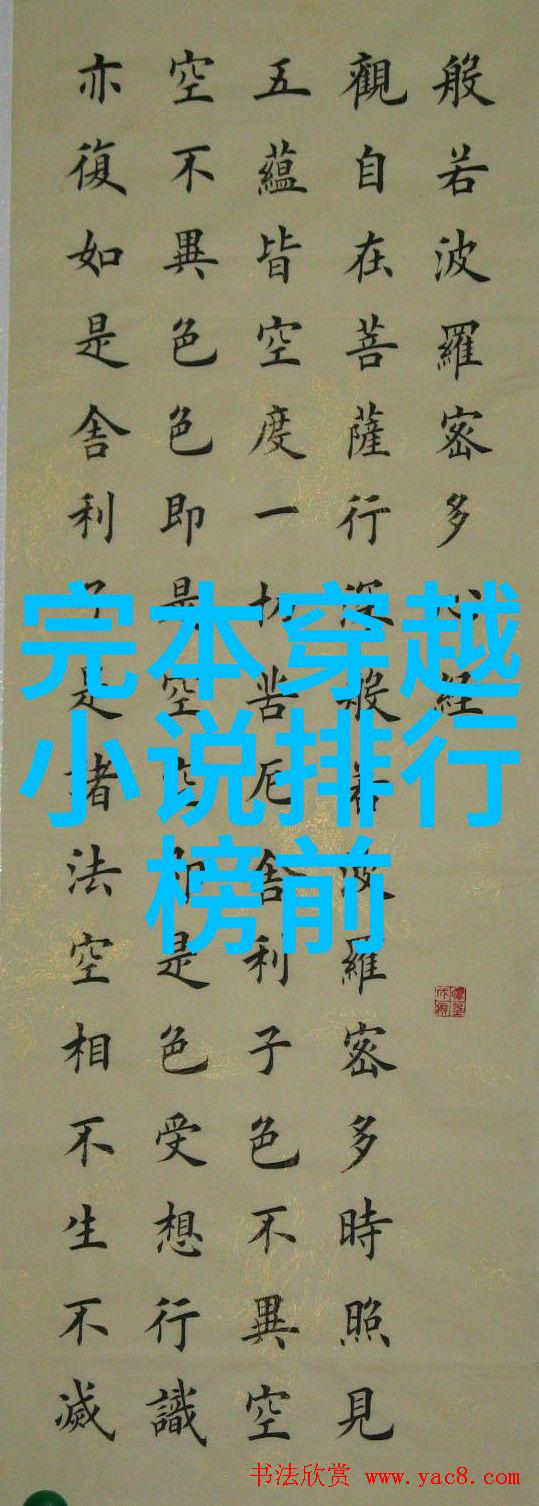 般若波羅密多心經
觀自在菩薩行深般若波羅密多時照見
五蘊皆空度一切苦厄舍利子色不異空
空不異色色即是空空即是色受想行識
亦復如是舍利子是諸法空相不生不滅
完本穿越
小说排行
榜前
书法欣赏 www.yac8.com